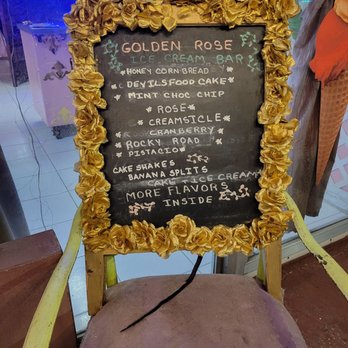 GOLDEN ROSE
ICE CREAM BAR
HONEY CORN BREAD
DEVILS FOOD CAKE
MINT CHOC CHIP
ROSE
CREAMSICLE
CRANBERRY
ROCKY ROAD
PISTACIO
CAKE SHAKES
BANANA SPLITS
CAKE + ICE CREAM
MORE FLAVORS
INSIDE